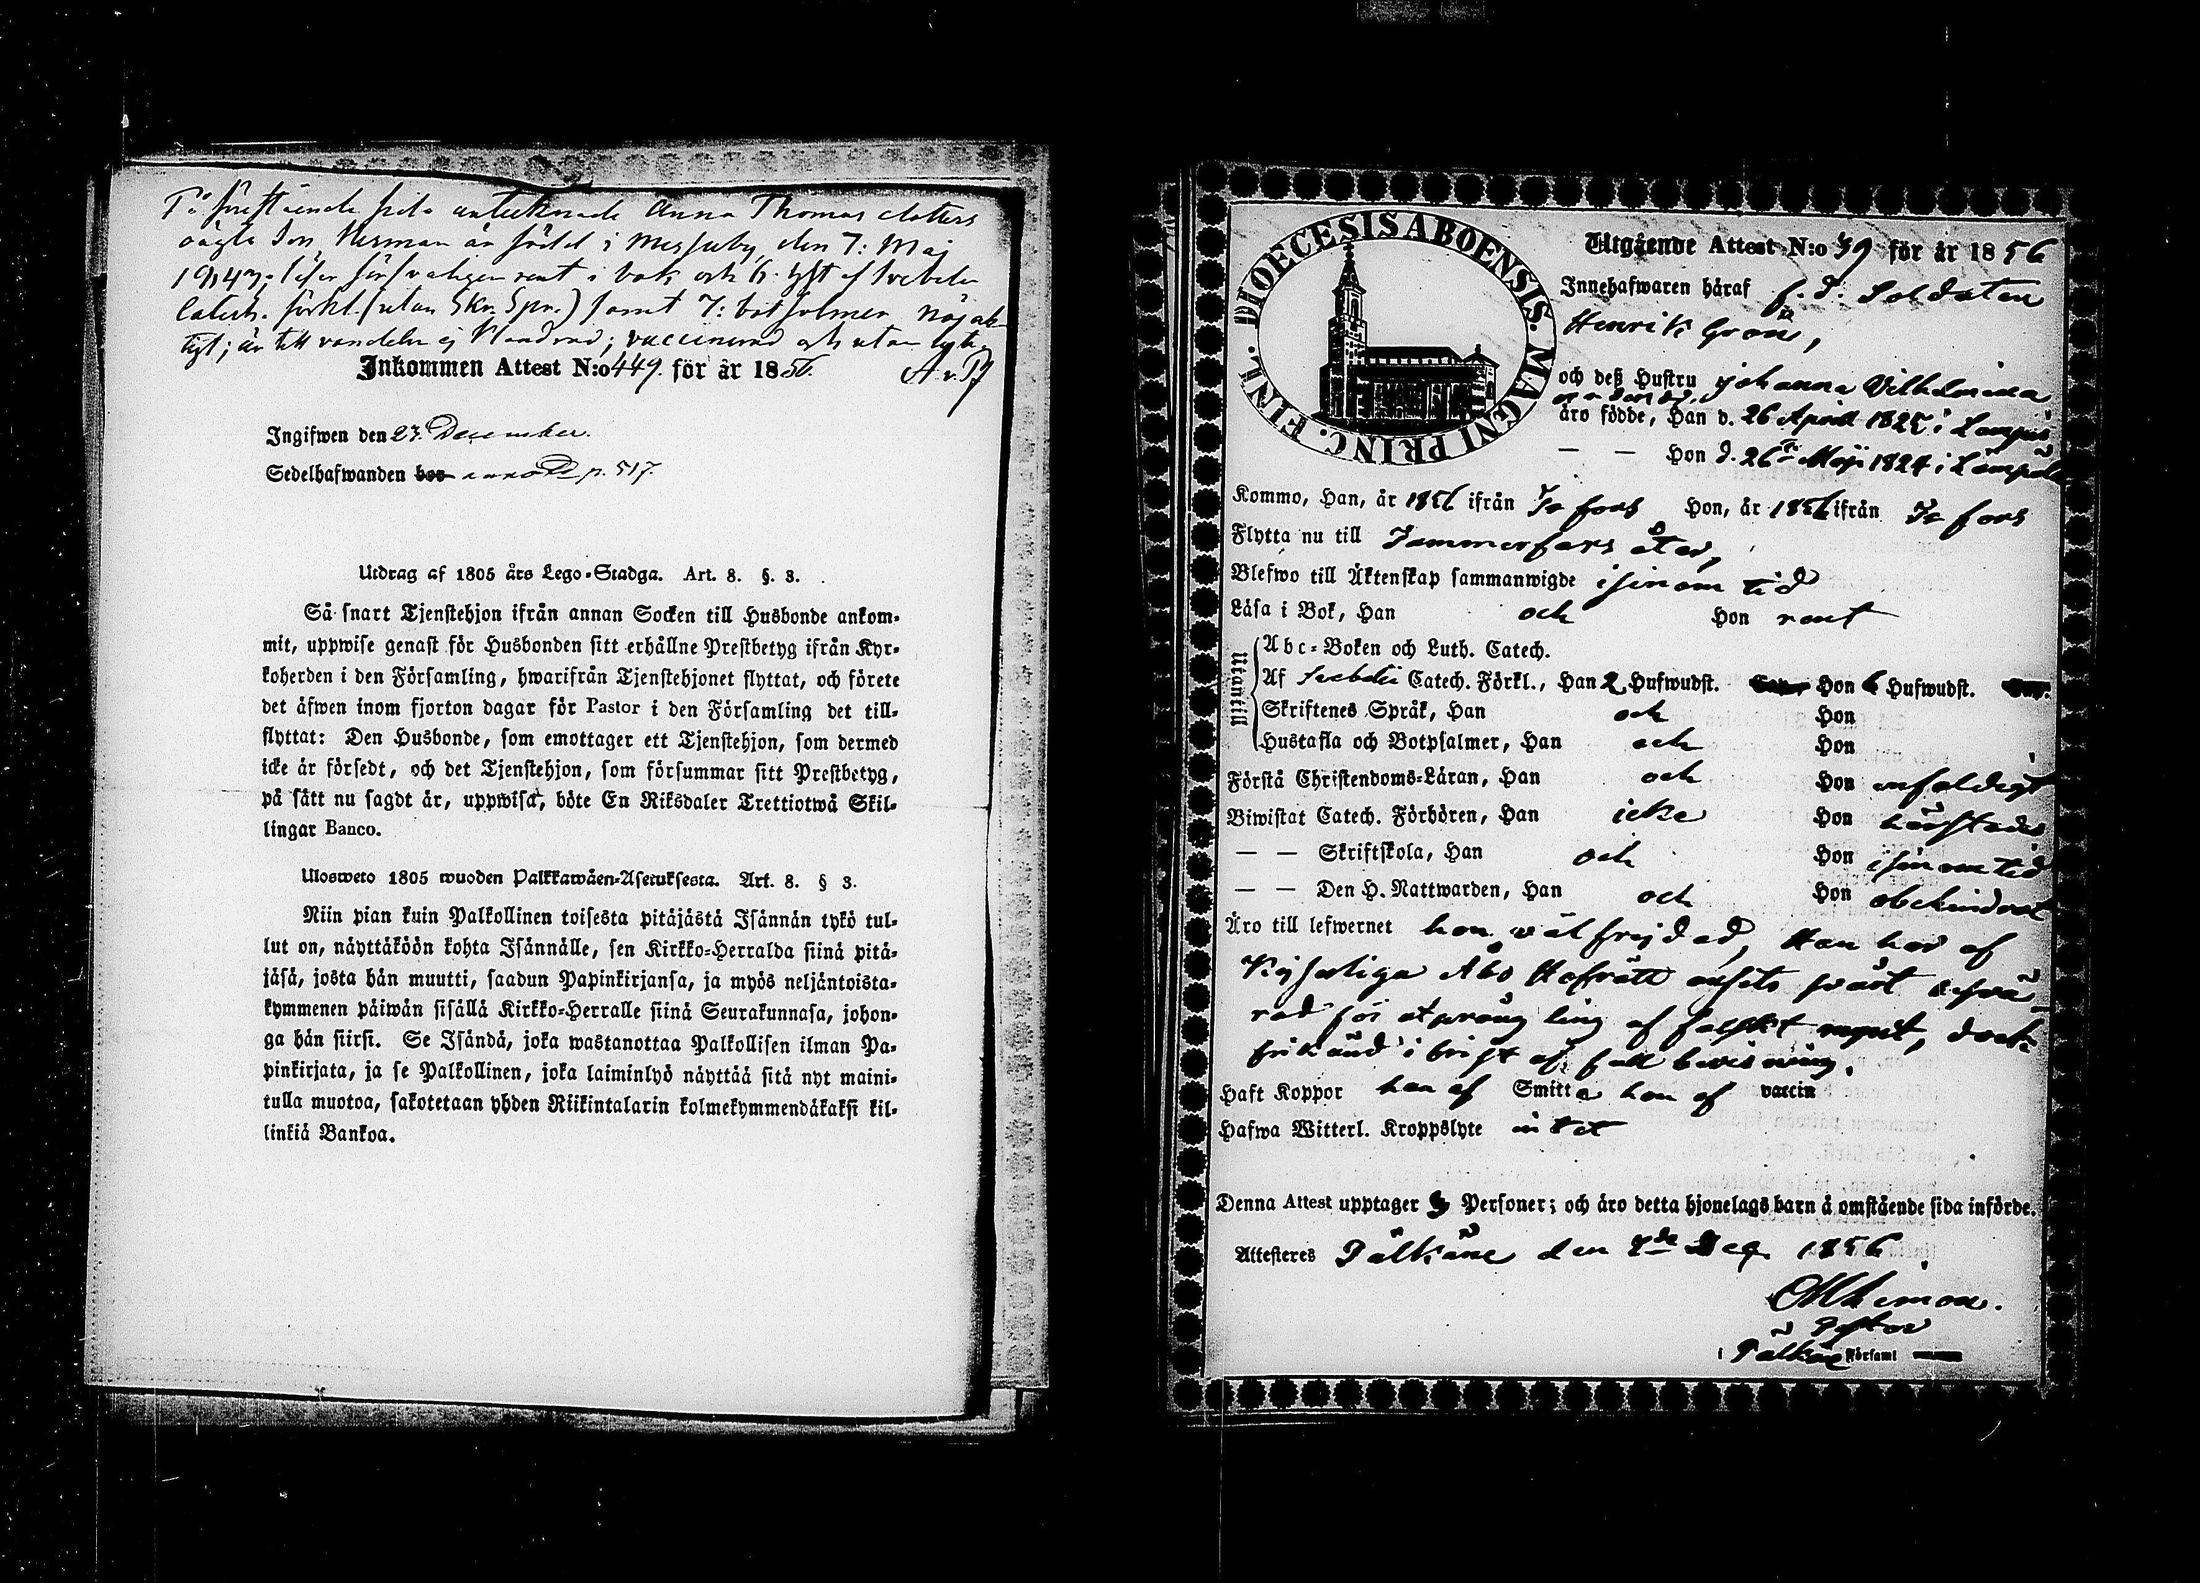 På förestående sida antecknade Anna Thomas dotters
oägta Son Herman är född i Messuby den 7: Maj
1943; läser försvarligen rent i bok och 6. hft af Svebelii
Catech. förkl. (utan Skr. Spr.) samt 7: botpsalmer nöjak-
tigt; är till vandeln ej klandrad; vaccinerad och utan lyte.
Inkommen Attest N:o 449. för år 1856.
Ingifwen den 23. December.
Sedelhafwanden p. 517.
Utdrag af 1805 års Lego-Stadga. Art. 8. §. 3.
Så snart Tjenstehjon ifrån annan Socken till Husbonde ankom-
mit, uppwise genast för Husbonden sitt erhållne Prestbetyg ifrån Kyr-
koherden i den Församling, hwarifrån Tjenstehjonet flyttat, och förete
det äfwen inom fjorton dagar för Pastor i den Församling det till-
flyttat: Den Husbonde, som emottager ett Tjenstehjon, som dermed
icke är försedt, och det Tjenstehjon, som försummar sitt Prestbetyg,
på sätt nu sagdt är, uppwisa, böte En Riksdaler Trettiotwå Skil-
lingar Banco.
Ulosweto 1805 wuoden Palkkawäen-Asetuksesta. Art. 8. § 3.
Niin pian kuin Palkollinen toisesta pitäjästä Isännän tykö tul-
lut on, näyttäköön kohta Isännälle, sen Kirkko-Herralda siinä pitä-
jäsä, josta hän muutti, saadun Papinkirjansa, ja myös neljäntoista-
kymmenen päiwän sisällä Kirkko-Herralle siinä Seurakunnasa, johon-
ga hän siirsi. Se Isändä, joka wastanottaa Palkollisen ilman Pa-
pinkirjata, ja se Palkollinen, joka laiminlyö näyttää sitä nyt maini-
tulla muotoa, sakotetaan yhden Riikintalarin kolmekymmendäkaksi kil-
linkiä Bankoa.
DIOECESIS ABOENSIS. MAGNI PRINC. FINL.
Utgående Attest N:o 49 för år 1856
Innehafwaren häraf f. d. Soldaten
Henrik Grön,
och deß Hustru Johanna Vilhelmina
äro födde, Han d. 26 April 1825 i Lempis
— — Hon d. 26 Maji 1824 i Lempäle
Kommo, Han, år 1856 ifrån Ta fors Hon, år 1856 ifrån Ta fors
Flytta nu till Tammerfors åter,
Blefwo till Äktenskap sammanwigde i sinom tid
Läsa i Bok, Han och Hon rent
Utantill
Abc-Boken och Luth. Catech.
Af Svebelii Catech. Förkl., Han 2 Hufwudst. Hon 6 Hufwudst.
Skriftenes Språk, Han och Hon
Hustafla och Botpsalmer, Han och Hon
Förstå Christendoms-Läran, Han och Hon enfaldigt
Biwistat Catech. Förhören, Han icke Hon härstädes
— — Skriftskola, Han och Hon i sinom tid
— — Den H. Nattwarden, Han och Hon obehindrat
Äro till lefwernet hon välfrejdad, Han har af
Kejserliga Åbo Hofrätt ansets svårt besvä-
rad för utprångling af falskt mynt, dock
frikänd i brist af full bevisning.
Haft Koppor han af Smitta hon af vaccin
Hafwa Witterl. Kroppslyte intet
Denna Attest upptager 3 Personer; och äro detta hjonelags barn å omstående sida införde.
Attesteras Pälkäne den 8de Dec. 1856
Pastor
i Pälkäne Församl